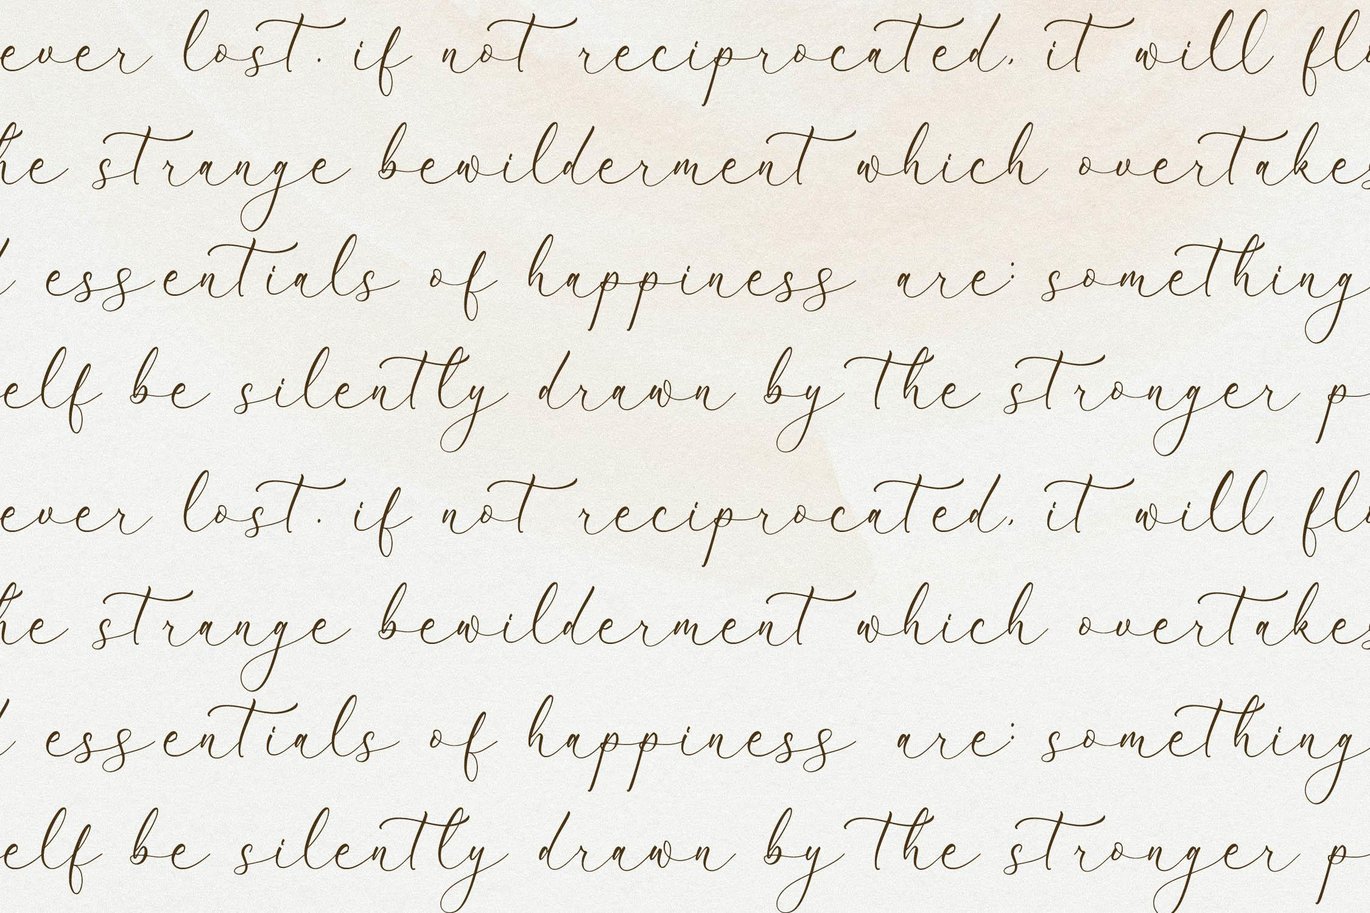 ever lost. if not reciprocated, it will fl
he strange bewilderment which overtakes
l essentials of happiness are: something
elf be silently drawn by the stronger p
ever lost. if not reciprocated, it will fl
he strange bewilderment which overtakes
l essentials of happiness are: something
elf be silently drawn by the stronger p